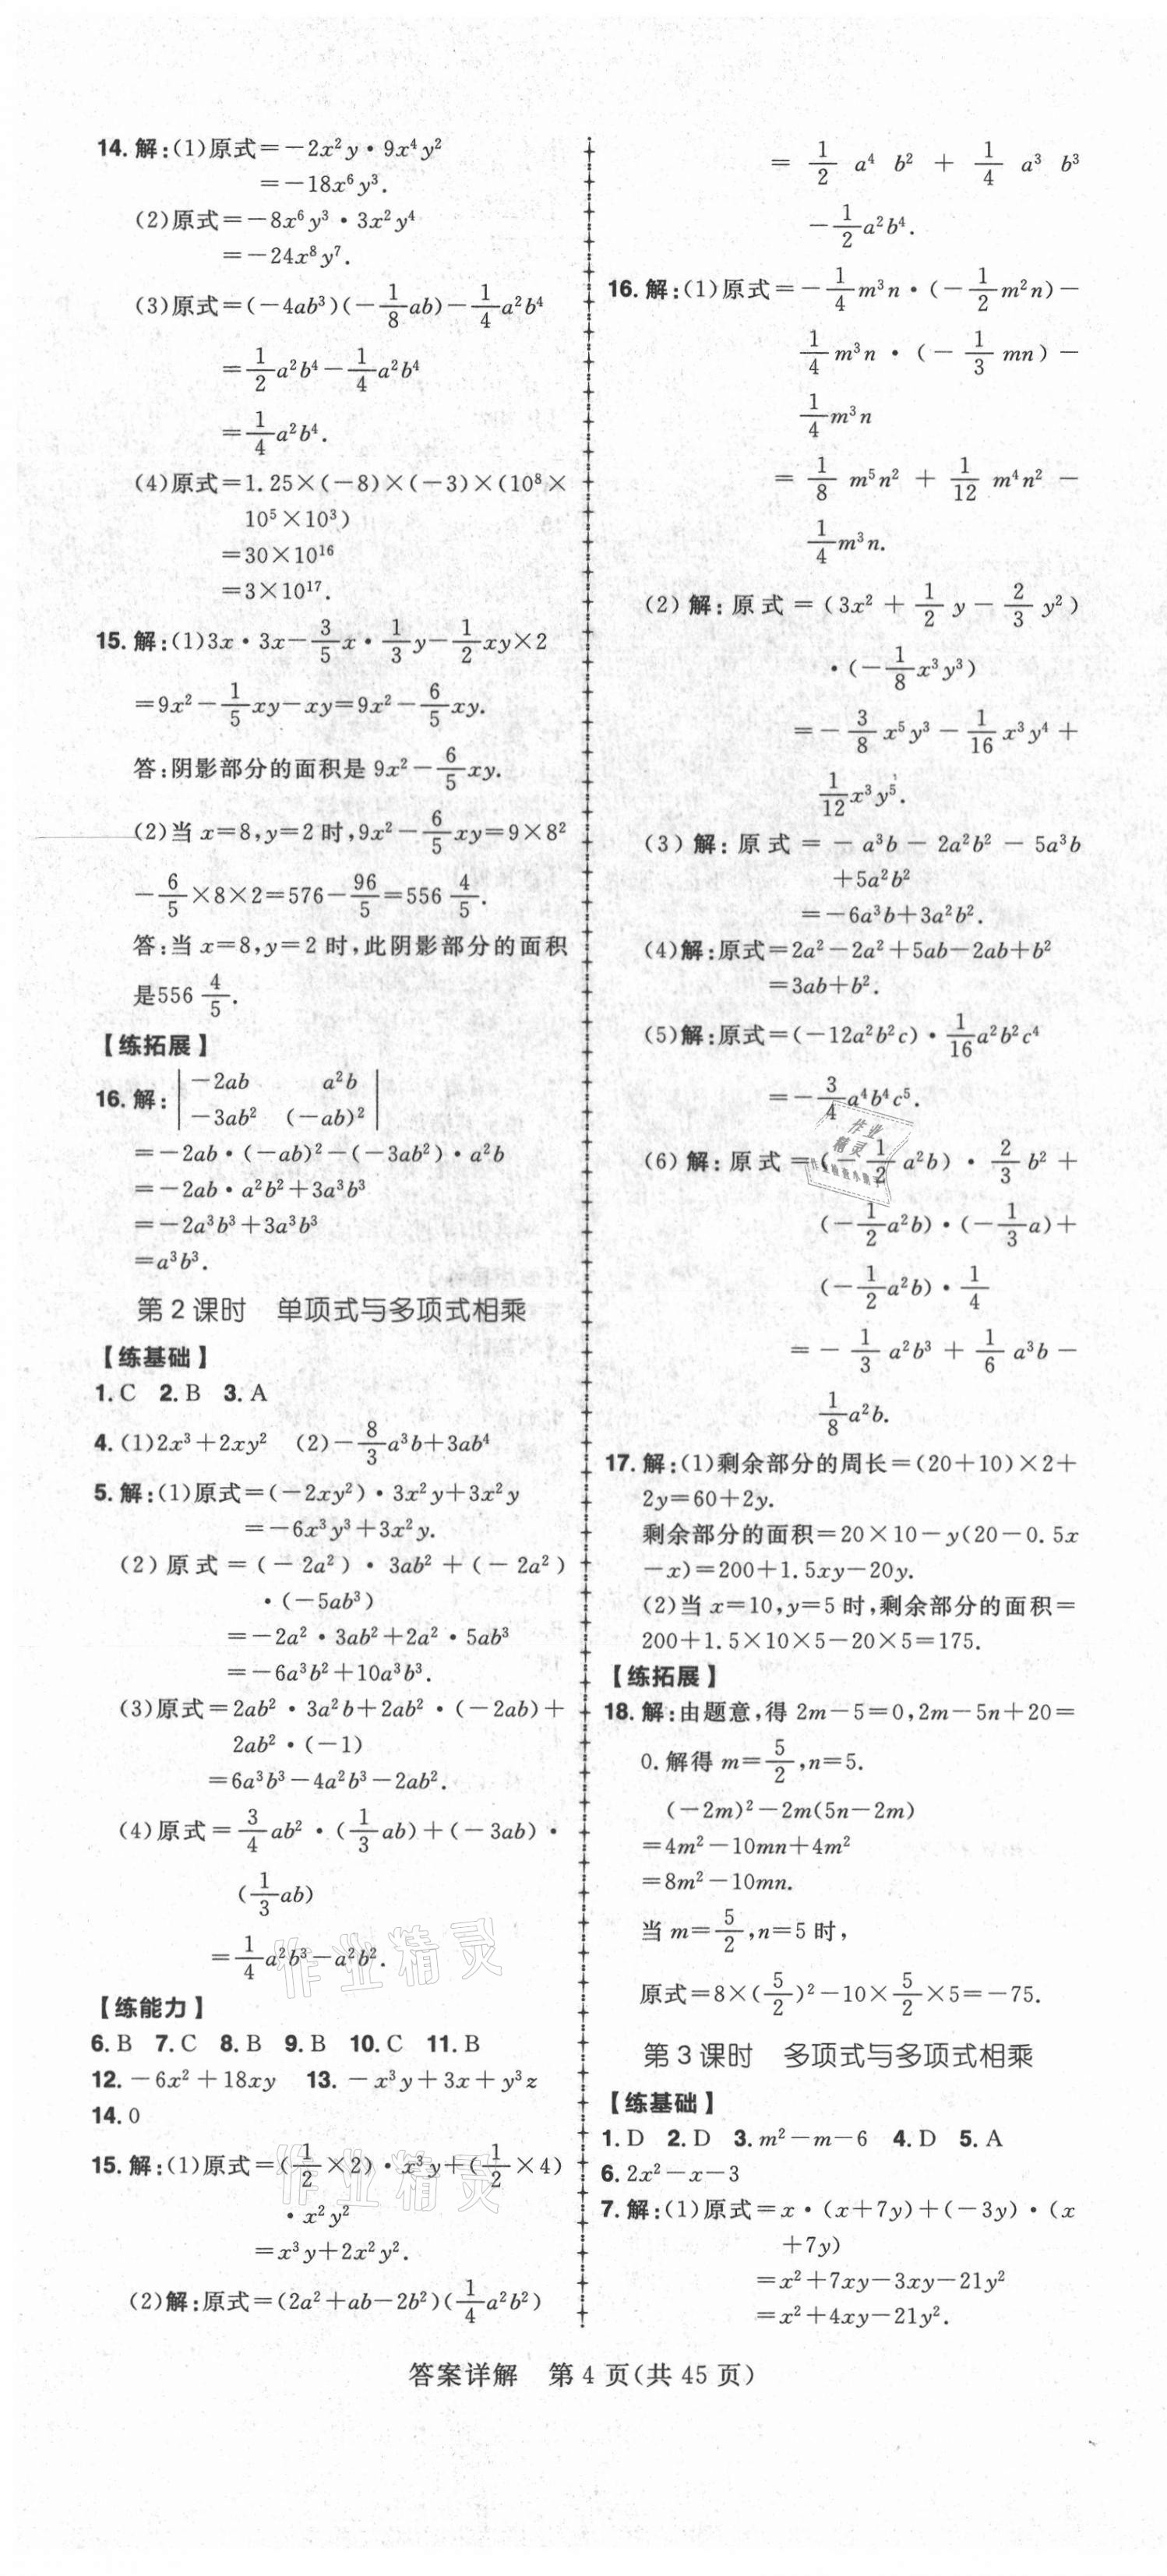 14. 解:(1)原式=−2x²y·9x⁴y²
=−18x⁶y³.
(2)原式=−8x⁶y³·3x²y⁴
=−24x⁸y⁷.
(3)原式=(−4ab³)(−1/8 ab)−1/4 a²b⁴
=1/2 a²b⁴−1/4 a²b⁴
=1/4 a²b⁴.
(4)原式=1.25×(−8)×(−3)×(10⁸×
10⁵×10³)
=30×10¹⁶
=3×10¹⁷.
15. 解:(1)3x·3x−3/5 x·1/3 y−1/2 xy×2
=9x²−1/5 xy−xy=9x²−6/5 xy.
答:阴影部分的面积是 9x²−6/5 xy.
(2)当 x=8,y=2 时,9x²−6/5 xy=9×8²
−6/5×8×2=576−96/5=556 4/5.
答:当 x=8,y=2 时,此阴影部分的面积
是556 4/5.
【练拓展】
16. 解: | −2ab a²b |
| −3ab² (−ab)² |
=−2ab·(−ab)²−(−3ab²)·a²b
=−2ab·a²b²+3a³b³
=−2a³b³+3a³b³
=a³b³.
第 2 课时 单项式与多项式相乘
【练基础】
1. C 2. B 3. A
4. (1)2x³+2xy² (2)−8/3 a³b+3ab⁴
5. 解:(1)原式=(−2xy²)·3x²y+3x²y
=−6x³y³+3x²y.
(2)原式=(−2a²)·3ab²+(−2a²)
·(−5ab³)
=−2a²·3ab²+2a²·5ab³
=−6a³b²+10a³b³.
(3)原式=2ab²·3a²b+2ab²·(−2ab)+
2ab²·(−1)
=6a³b³−4a²b³−2ab².
(4)原式=3/4 ab²·(1/3 ab)+(−3ab)·
(1/3 ab)
=1/4 a²b³−a²b².
【练能力】
6. B 7. C 8. B 9. B 10. C 11. B
12. −6x²+18xy 13. −x³y+3x+y³z
14. 0
15. 解:(1)原式=(1/2×2)·x³y+(1/2×4)
·x²y²
=x³y+2x²y².
(2)解:原式=(2a²+ab−2b²)(1/4 a²b²)
=1/2 a⁴b²+1/4 a³b³
−1/2 a²b⁴.
16. 解:(1)原式=−1/4 m³n·(−1/2 m²n)−
1/4 m³n·(−1/3 mn)−
1/4 m³n
=1/8 m⁵n²+1/12 m⁴n²−
1/4 m³n.
(2)解:原式=(3x²+1/2 y−2/3 y²)
·(−1/8 x³y³)
=−3/8 x⁵y³−1/16 x³y⁴+
1/12 x³y⁵.
(3)解:原式=−a³b−2a²b²−5a³b
+5a²b²
=−6a³b+3a²b².
(4)解:原式=2a²−2a²+5ab−2ab+b²
=3ab+b².
(5)解:原式=(−12a²b²c)·1/16 a²b²c⁴
=−3/4 a⁴b⁴c⁵.
(6)解:原式=(−1/2 a²b)·2/3 b²+
(−1/2 a²b)·(−1/3 a)+
(−1/2 a²b)·1/4
=−1/3 a²b³+1/6 a³b−
1/8 a²b.
17. 解:(1)剩余部分的周长=(20+10)×2+
2y=60+2y.
剩余部分的面积=20×10−y(20−0.5x
−x)=200+1.5xy−20y.
(2)当 x=10,y=5 时,剩余部分的面积=
200+1.5×10×5−20×5=175.
【练拓展】
18. 解:由题意,得 2m−5=0,2m−5n+20=
0.解得 m=5/2,n=5.
(−2m)²−2m(5n−2m)
=4m²−10mn+4m²
=8m²−10mn.
当 m=5/2,n=5 时,
原式=8×(5/2)²−10×5/2×5=−75.
第 3 课时 多项式与多项式相乘
【练基础】
1. D 2. D 3. m²−m−6 4. D 5. A
6. 2x²−x−3
7. 解:(1)原式=x·(x+7y)+(−3y)·(x
+7y)
=x²+7xy−3xy−21y²
=x²+4xy−21y².
答案详解 第 4 页(共 45 页)
作业精灵
作业精灵
作业
精灵